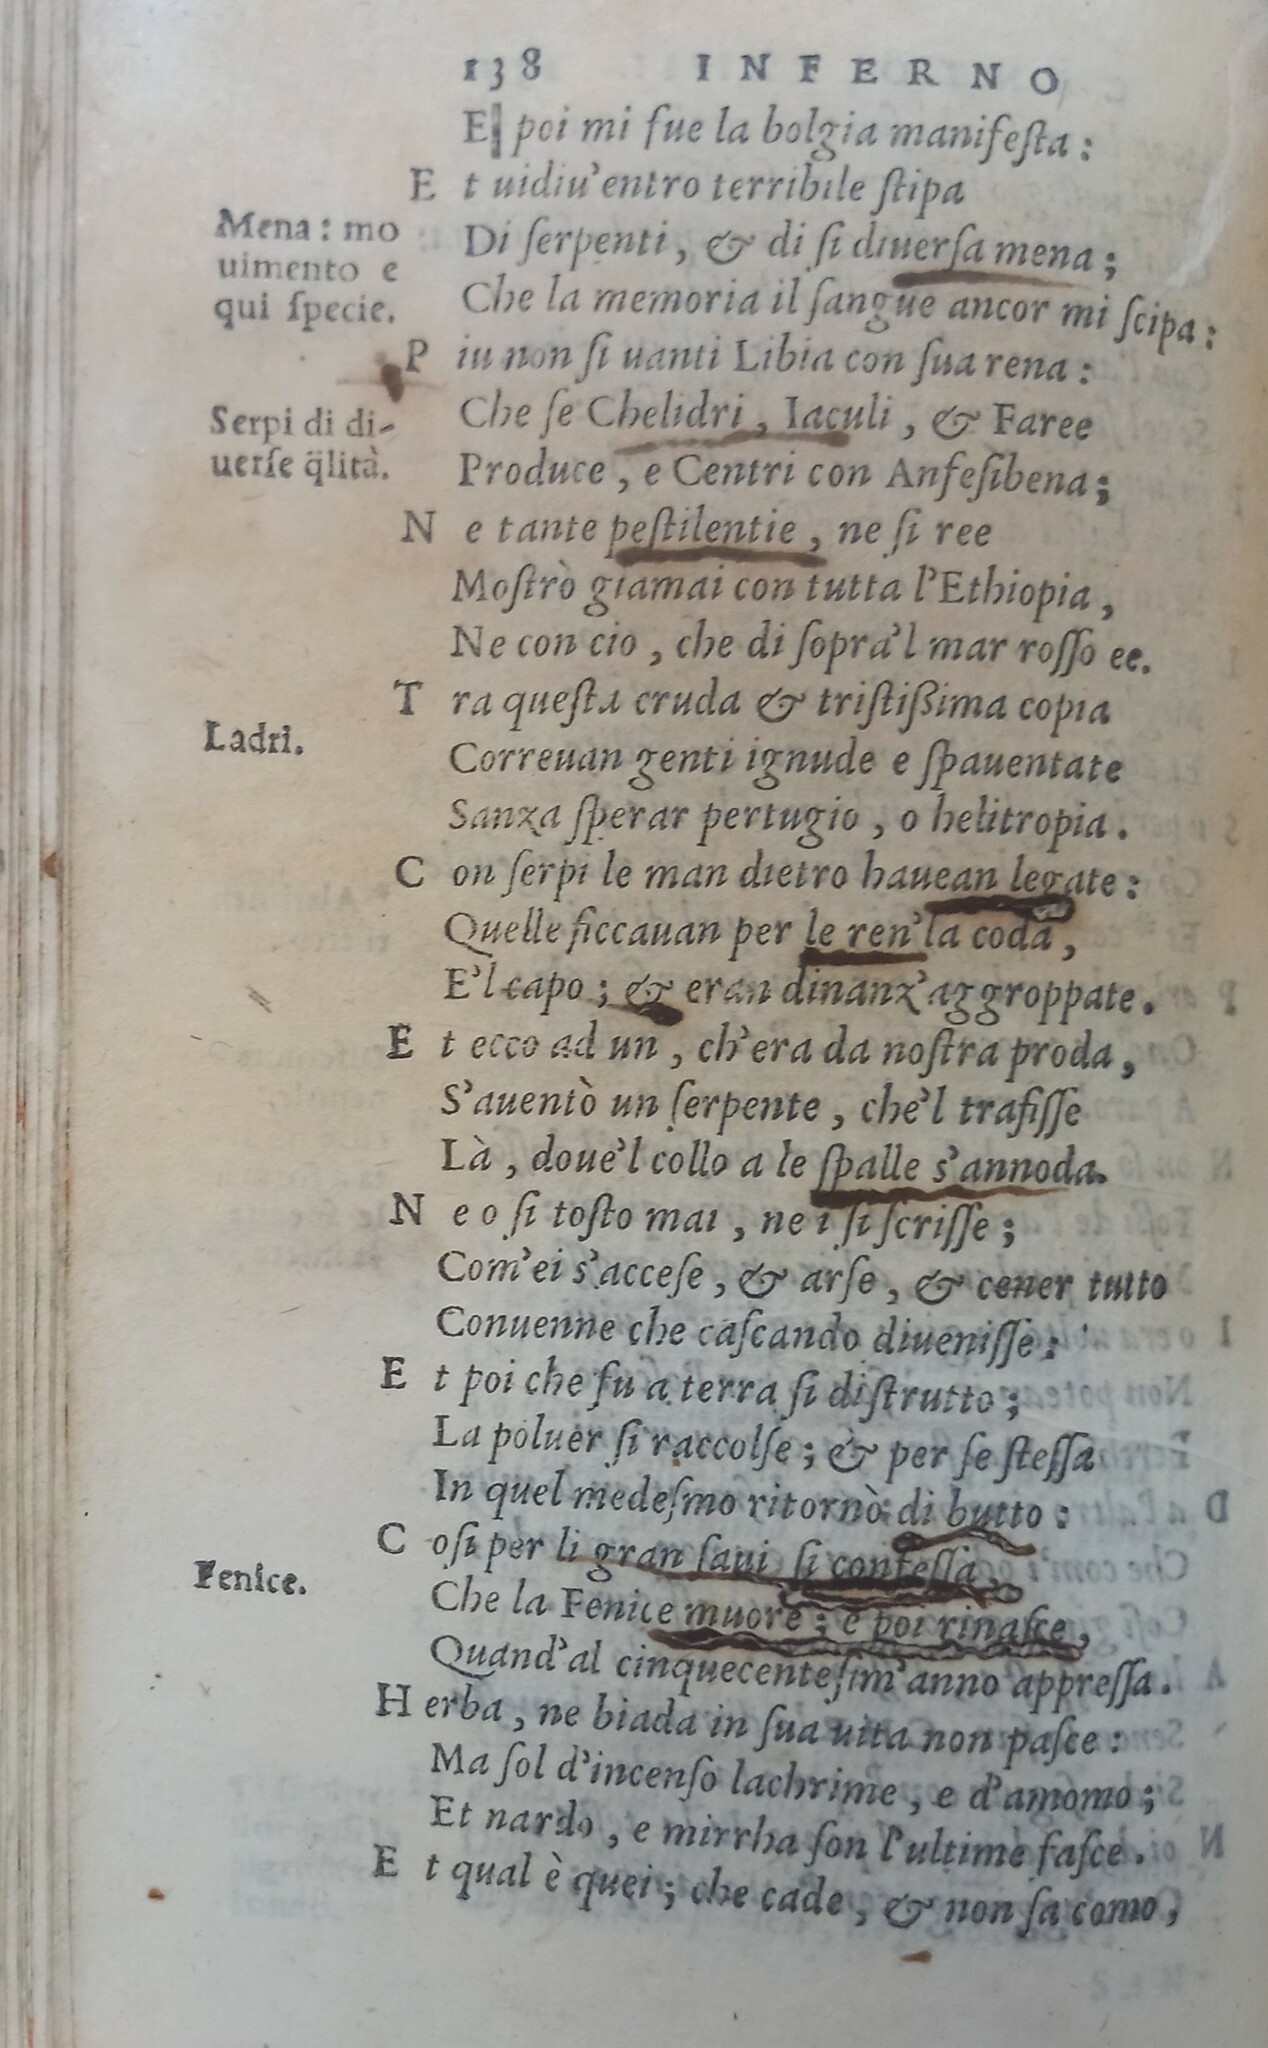 138 INFERNO
E poi mi fue la bolgia manifeſta:
E t uidiu'entro terribile ſtipa
Mena: mo
uimento e
qui ſpecie.
Di ſerpenti, & di ſi diuerſa mena;
Che la memoria il ſangue ancor mi ſcipa:
P iu non ſi uanti Libia con ſua rena:
Serpi di di-
uerſe q̃lità.
Che ſe Chelidri, Iaculi, & Faree
Produce, e Centri con Anfeſibena;
N e tante peſtilentie, ne ſi ree
Moſtrò giamai con tutta l'Ethiopia,
Ne con cio, che di ſopra'l mar roſſo ee.
T ra queſta cruda & triſtißima copia
Ladri.
Correuan genti ignude e ſpauentate
Sanza ſperar pertugio, o helitropia.
C on ſerpi le man dietro hauean legate:
Quelle ficcauan per le ren'la coda,
E'l capo; & eran dinanz'aggroppate.
E t ecco ad un, ch'era da noſtra proda,
S'auentò un ſerpente, che'l trafiſſe
Là, doue'l collo a le ſpalle s'annoda.
N e o ſi toſto mai, ne i ſi ſcriſſe;
Com'ei s'acceſe, & arſe, & cener tutto
Conuenne che caſcando diueniſſe:
E t poi che fu a terra ſi diſtrutto;
La poluer ſi raccolſe; & per ſe ſteſſa
In quel medeſmo ritornò di butto:
C oſi per li gran ſaui ſi confeſſa,
Fenice.
Che la Fenice muore; e poi rinaſce,
Quand'al cinquecenteſim'anno appreſſa.
H erba, ne biada in ſua uita non paſce:
Ma ſol d'incenſo lachrime, e d'amomo;
Et nardo, e mirrha ſon l'ultime faſce.
E t qual è quei; che cade, & non ſa como,